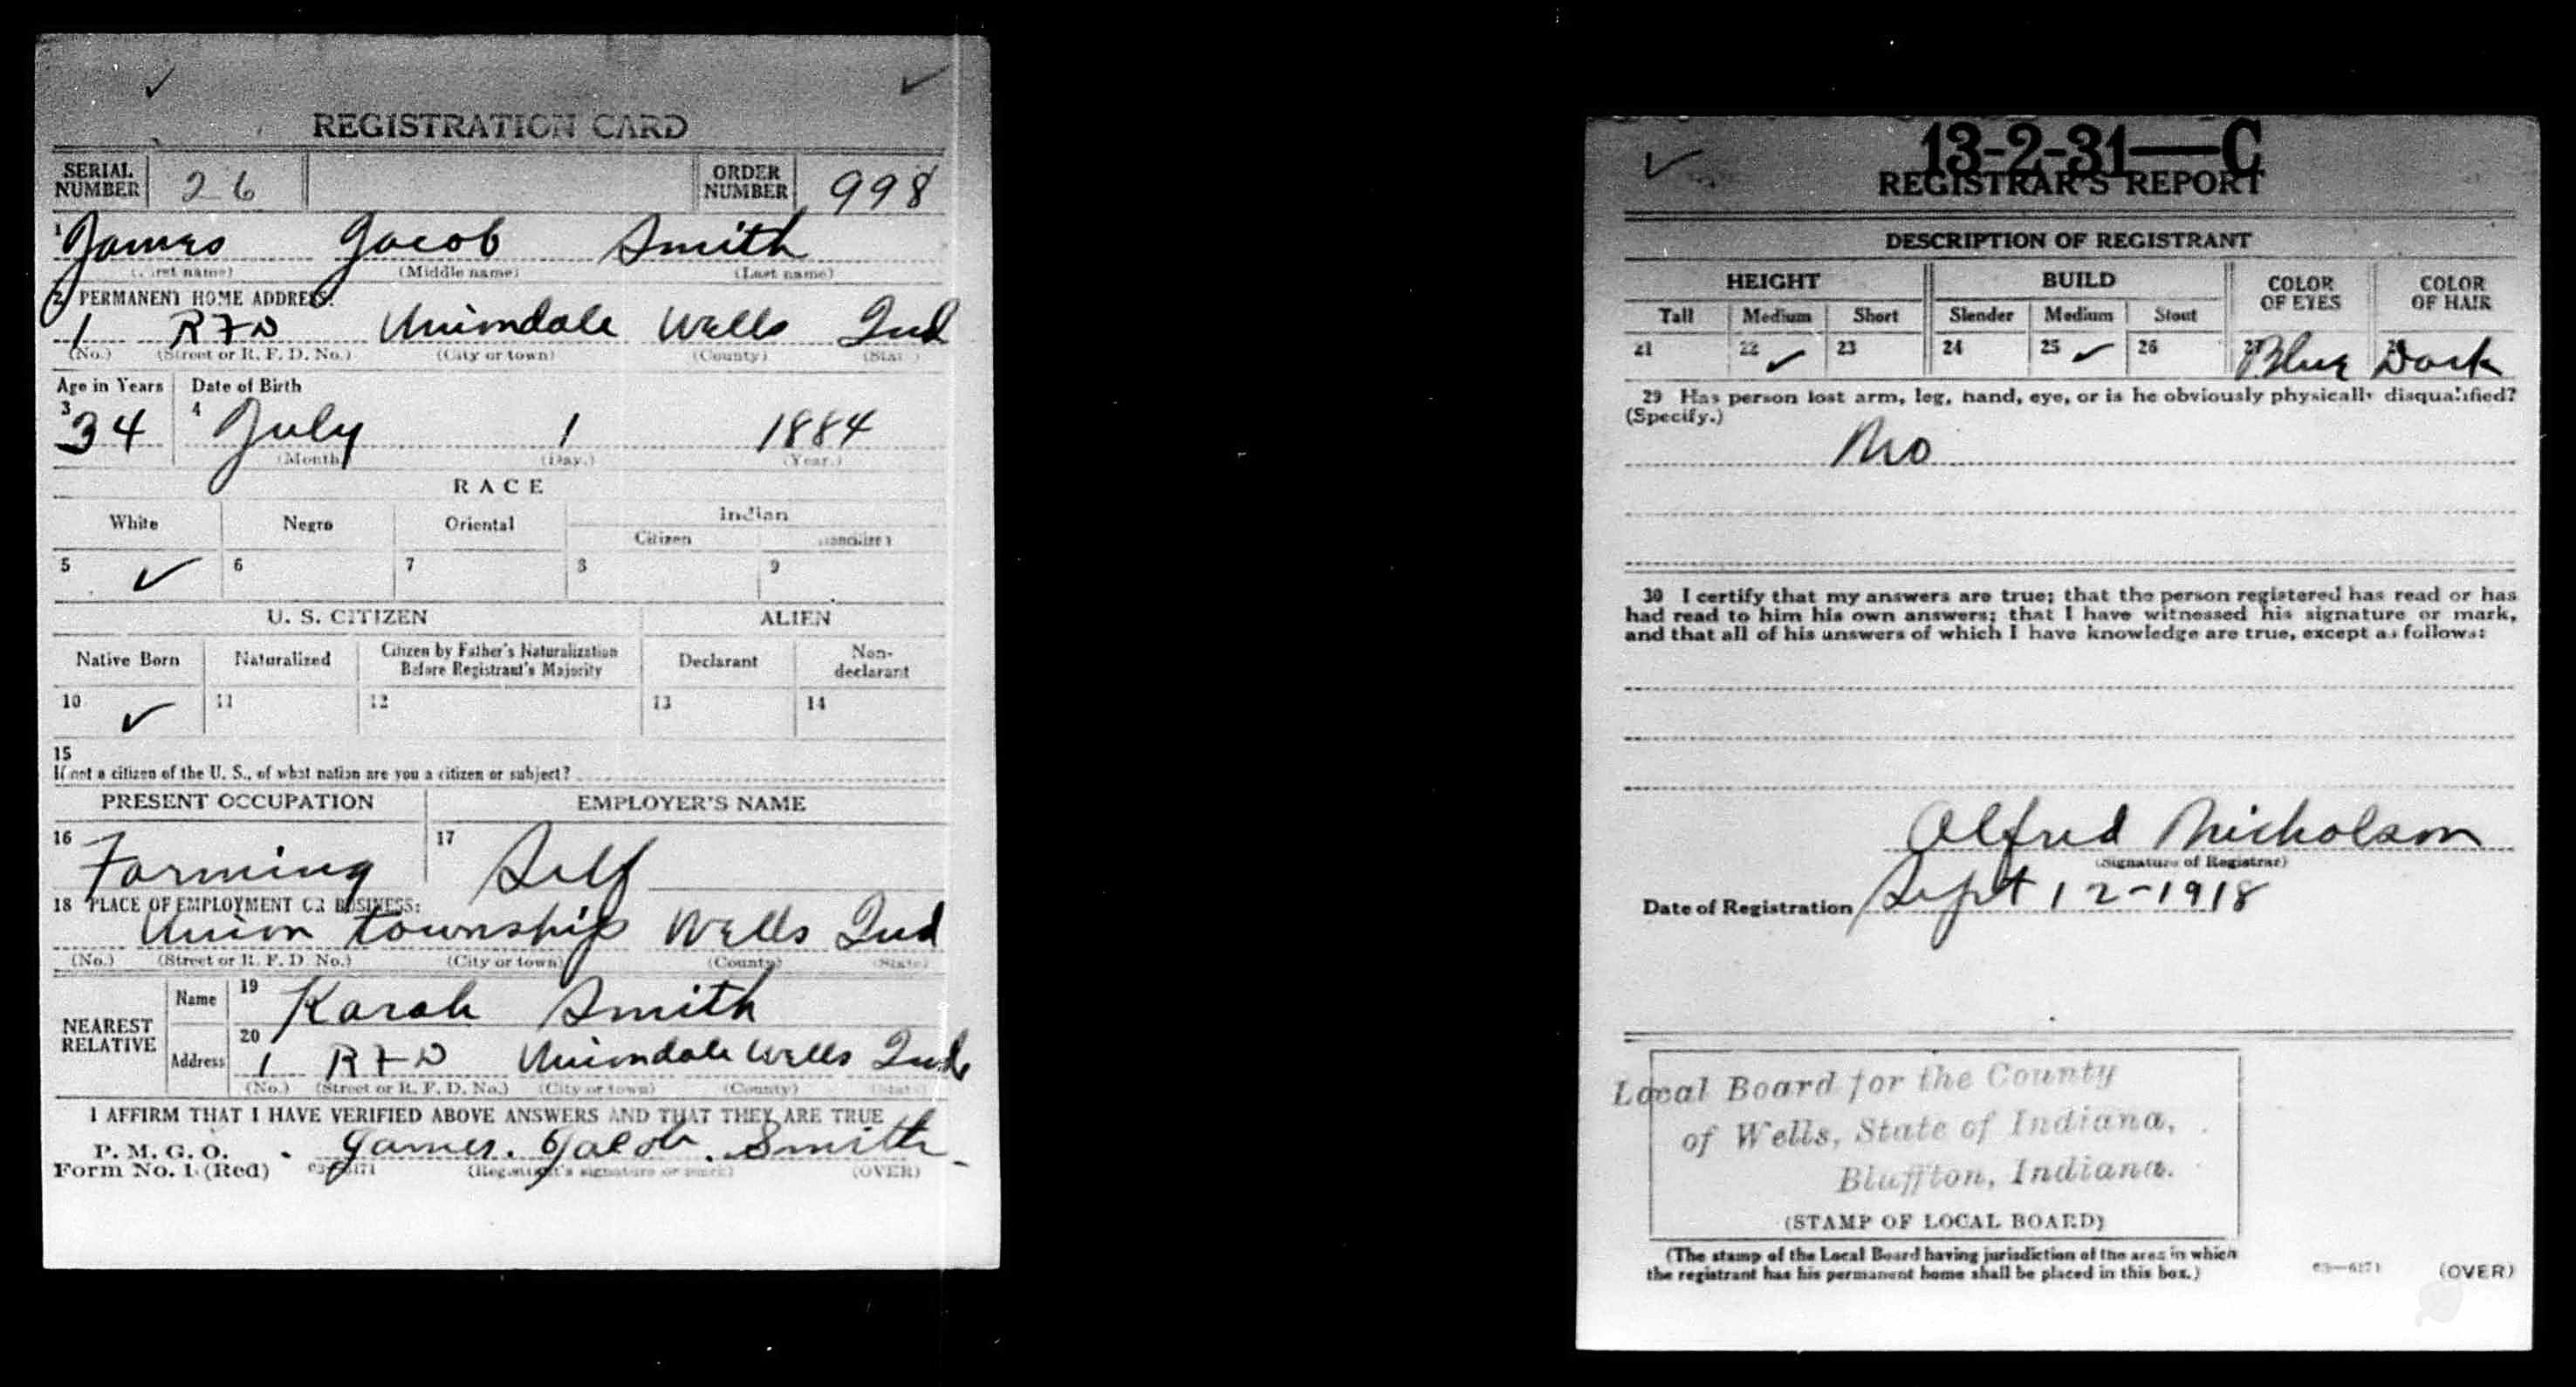 REGISTRATION CARD
SERIAL NUMBER 26 ORDER NUMBER 998
1 James Jacob Smith
(First name) (Middle name) (Last name)
2 PERMANENT HOME ADDRESS:
1 RFD Uniondale Wells Ind
(No.) (Street or R. F. D. No.) (City or town) (County) (State)
Age in Years Date of Birth
3 34 4 July 1 1884
(Month) (Day.) (Year.)
RACE
White Negro Oriental Indian
Citizen Noncitizen
5 ✓ 6 7 8 9
U. S. CITIZEN ALIEN
Native Born Naturalized Citizen by Father's Naturalization Before Registrant's Majority Declarant Non-declarant
10 ✓ 11 12 13 14
15
If not a citizen of the U. S., of what nation are you a citizen or subject?
PRESENT OCCUPATION EMPLOYER'S NAME
16 Farming 17 Self
18 PLACE OF EMPLOYMENT OR BUSINESS:
Union township Wells Ind
(No.) (Street or R. F. D. No.) (City or town) (County) (State)
NEAREST RELATIVE Name 19 Karah Smith
Address 20 1 RFD Uniondale Wells Ind
(No.) (Street or R. F. D. No.) (City or town) (County) (State)
I AFFIRM THAT I HAVE VERIFIED ABOVE ANSWERS AND THAT THEY ARE TRUE
P. M. G. O.
Form No. 1 (Red) 03-6171 James. Jacob. Smith
(Registrant's signature or mark) (OVER)
13-2-31—C
REGISTRAR'S REPORT
DESCRIPTION OF REGISTRANT
HEIGHT BUILD COLOR OF EYES COLOR OF HAIR
Tall Medium Short Slender Medium Stout
21 22 ✓ 23 24 25 ✓ 26 27 Blue 28 Dark
29 Has person lost arm, leg, hand, eye, or is he obviously physically disqualified?
(Specify.)
No
30 I certify that my answers are true; that the person registered has read or has
had read to him his own answers; that I have witnessed his signature or mark,
and that all of his answers of which I have knowledge are true, except as follows:
Alfred Nicholson
(Signature of Registrar)
Date of Registration Sept 12-1918
Local Board for the County
of Wells, State of Indiana,
Bluffton, Indiana.
(STAMP OF LOCAL BOARD)
(The stamp of the Local Board having jurisdiction of the area in which
the registrant has his permanent home shall be placed in this box.)
03—6171 (OVER)